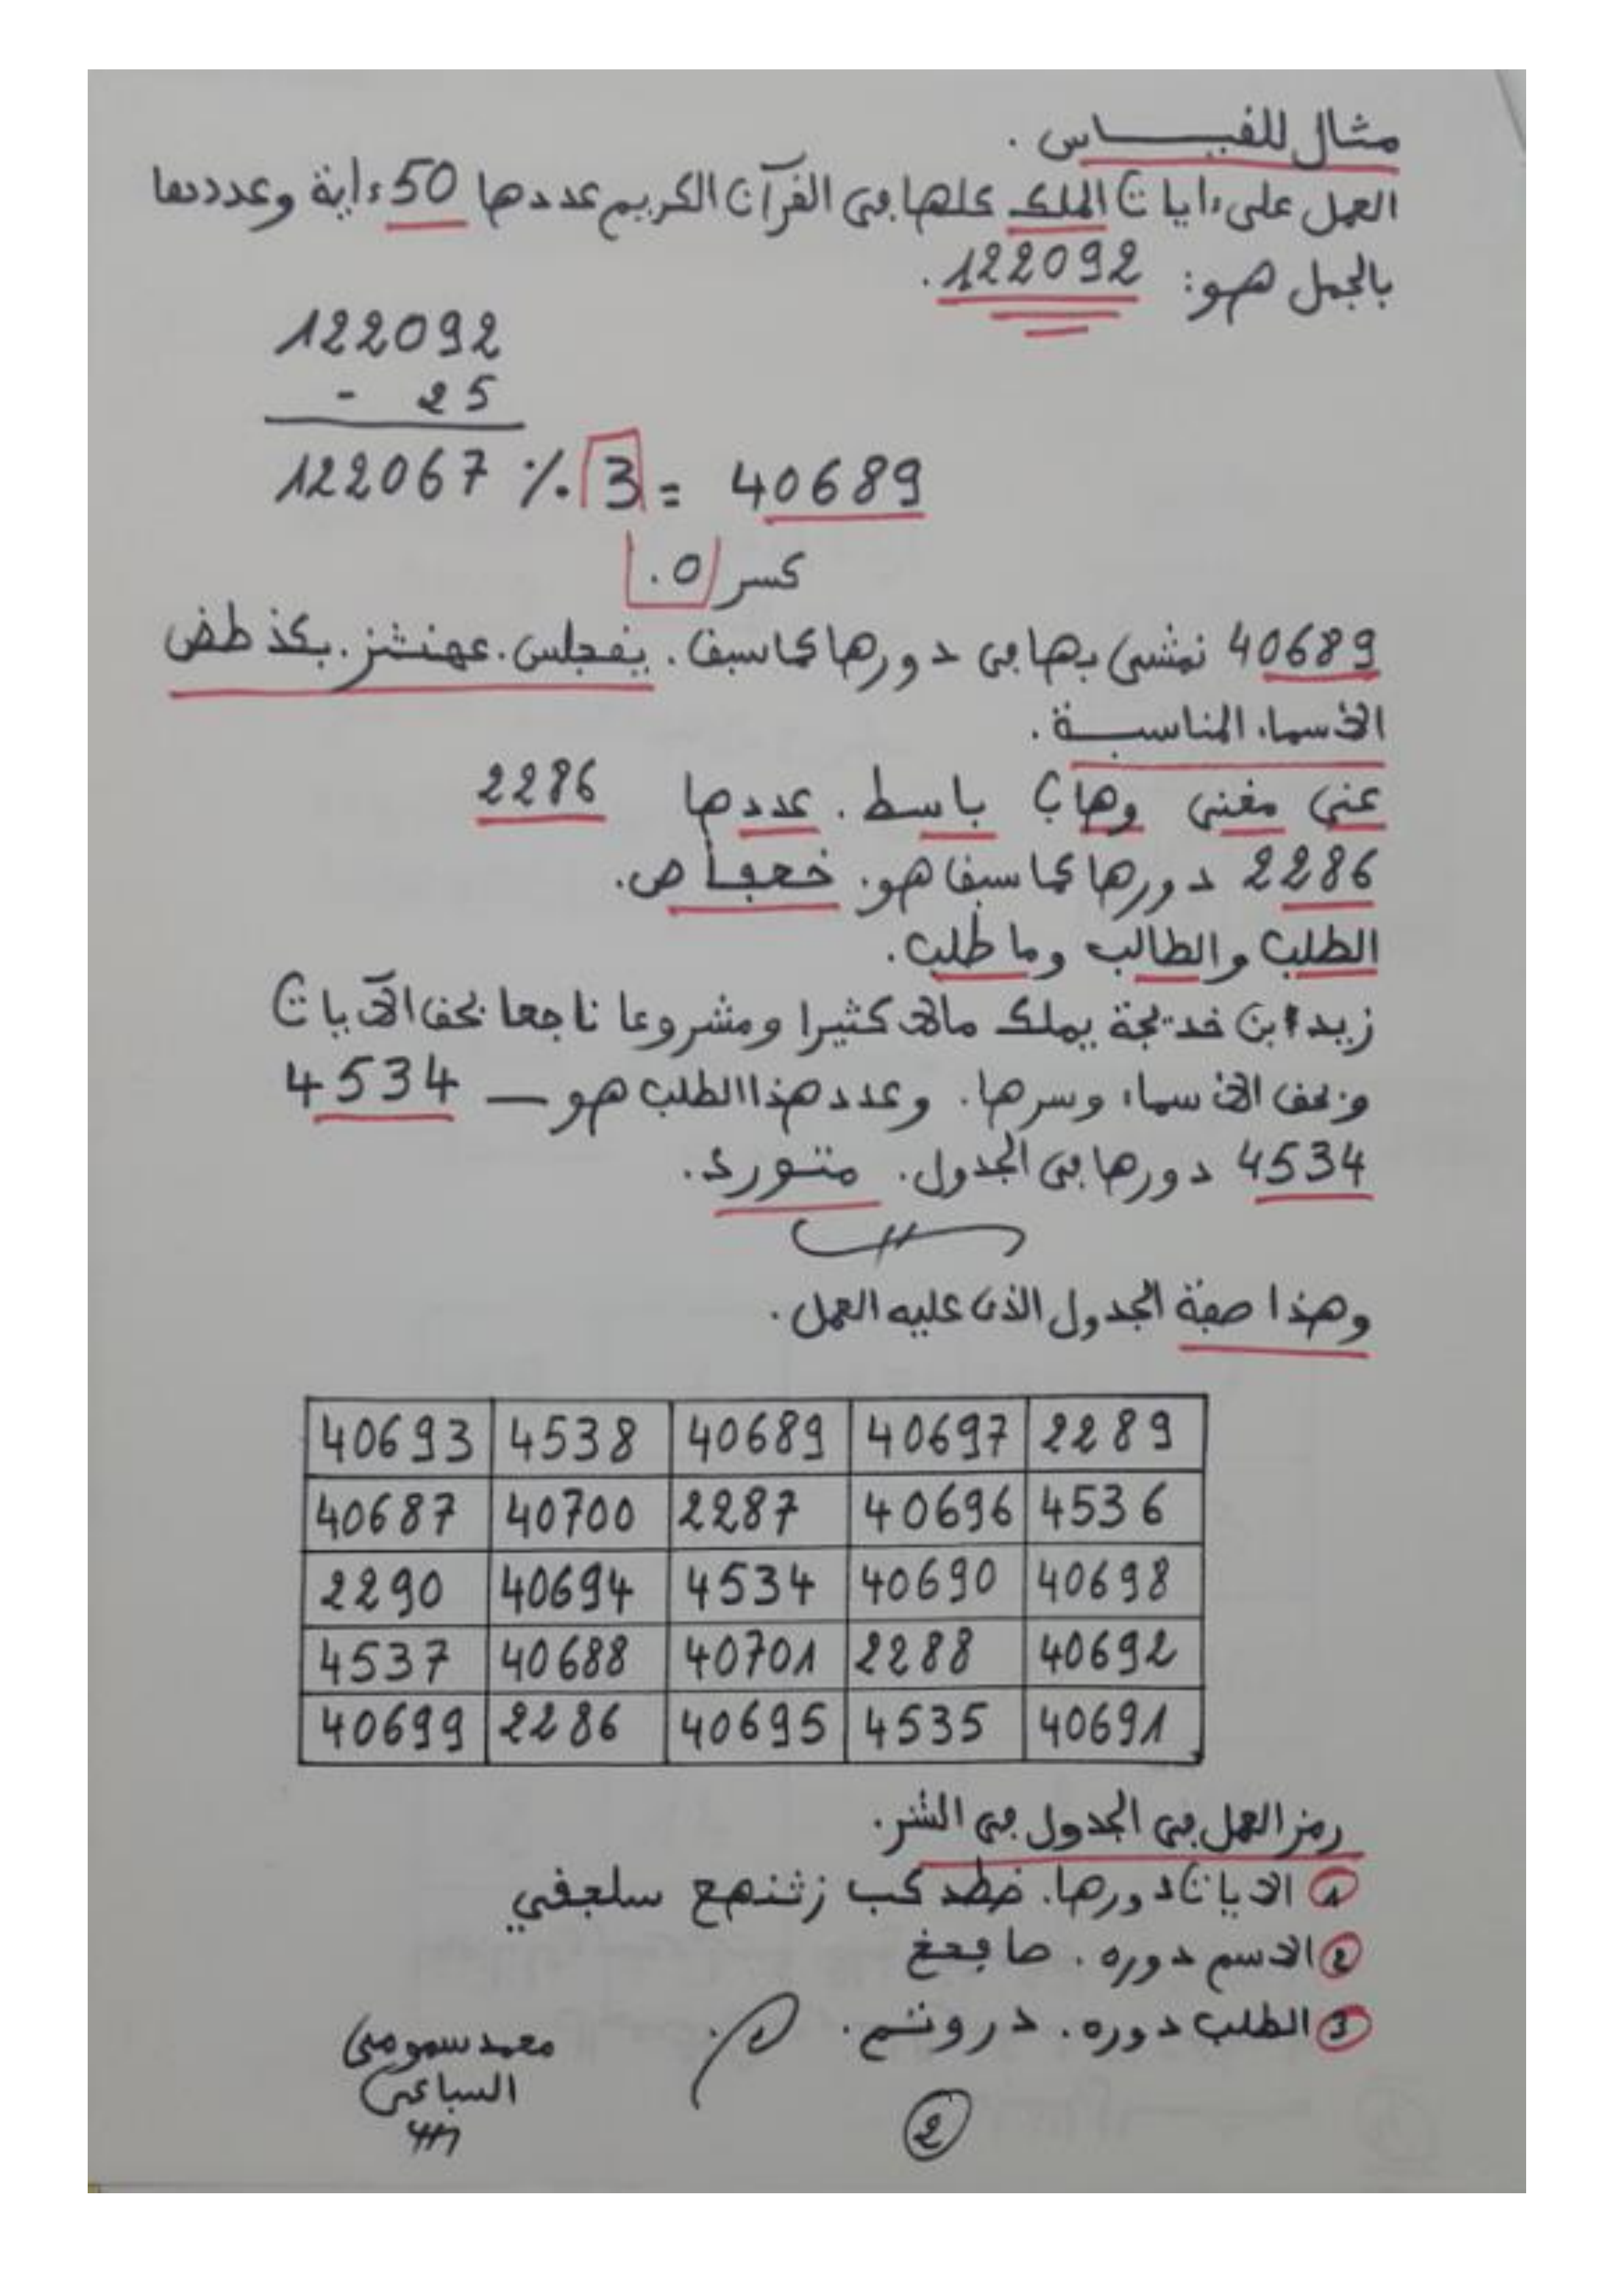 مثال للقياس .
العمل على ءايات الملك كلها في القرآن الكريم عددها 50 ءاية وعددها
بالجمل هو: 122092.
122092
- 25
122067 ٪ 3 = 40689
كسر 0.
40689 نمشي بها في دورها كما سبق. يفجلس. عهنثز. بكذ طض
الأسماء المناسبة.
غني مغني وهاب باسط. عددها 2286
2286 دورها كما سبق هو.
الطلب والطالب وما طلب.
زيد ابن خديجة يملك مالا كثيرا ومشروعا ناجحا بحق الآيات
وبحق الأسماء وسرها. وعدد هذا الطلب هو — 4534
4534 دورها في الجدول.
وهذا صفة الجدول الذي عليه العمل.
40693 4538 40689 40697 2289
40687 40700 2287 40696 4536
2290 40694 4534 40690 40698
4537 40688 40701 2288 40692
40699 2286 40695 4535 40691
رمز العمل في الجدول في
1 الايات دورها. ضطد كب زثنهع سلجفي
2 الاسم دوره.
3 الطلب دوره.
محمد
السباعي
2